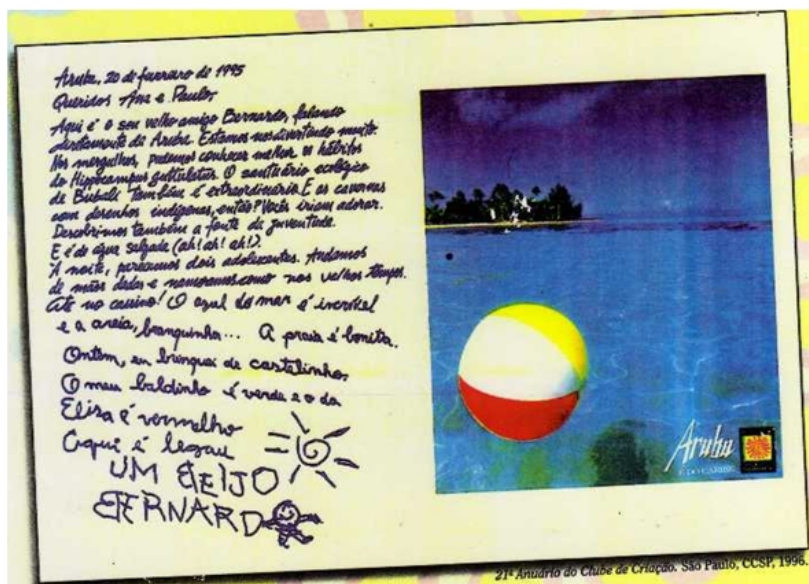 Aruba, 20 de fevereiro de 1995
Queridos Ana e Paulo,
Aqui é o seu velho amigo Bernardo, falando
diretamente de Aruba. Estamos nos divertindo muito.
Nos mergulhos, pudemos conhecer melhor os hábitos
do Hippocampus guttulatus. O santuário ecológico
de Bubali também é extraordinário. E as cavernas
com desenhos indígenas, então? Vocês iriam adorar.
Descobrimos também a fonte da juventude.
E é de água salgada (ah! ah! ah!).
À noite, parecemos dois adolescentes. Andamos
de mãos dadas e namoramos como nos velhos tempos.
Até no cassino! O azul do mar é incrível
e a areia, branquinha... A praia é bonita.
Ontem, eu brinquei de castelinho.
O meu baldinho é verde e o da
Elisa é vermelho
Aqui é legau
UM BEIJO
BERNARDO
Aruba
É DO CARIBE
21º Anuário do Clube de Criação. São Paulo, CCSP, 1996.